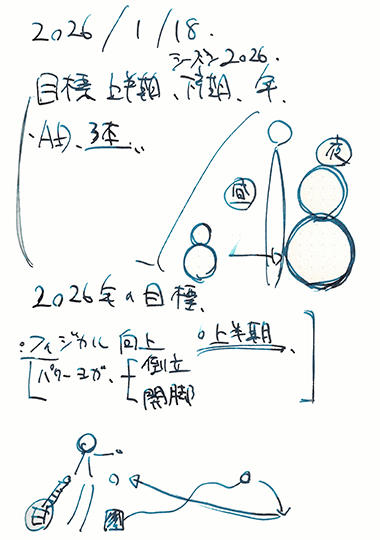 2026/1/18.
シーズン2026.
目標 上半期、下期、年、
・AID、3本、、
夜
昼
2026年の目標、
:フィジカル向上 。上半期、
パワーヨガ、倒立
開脚